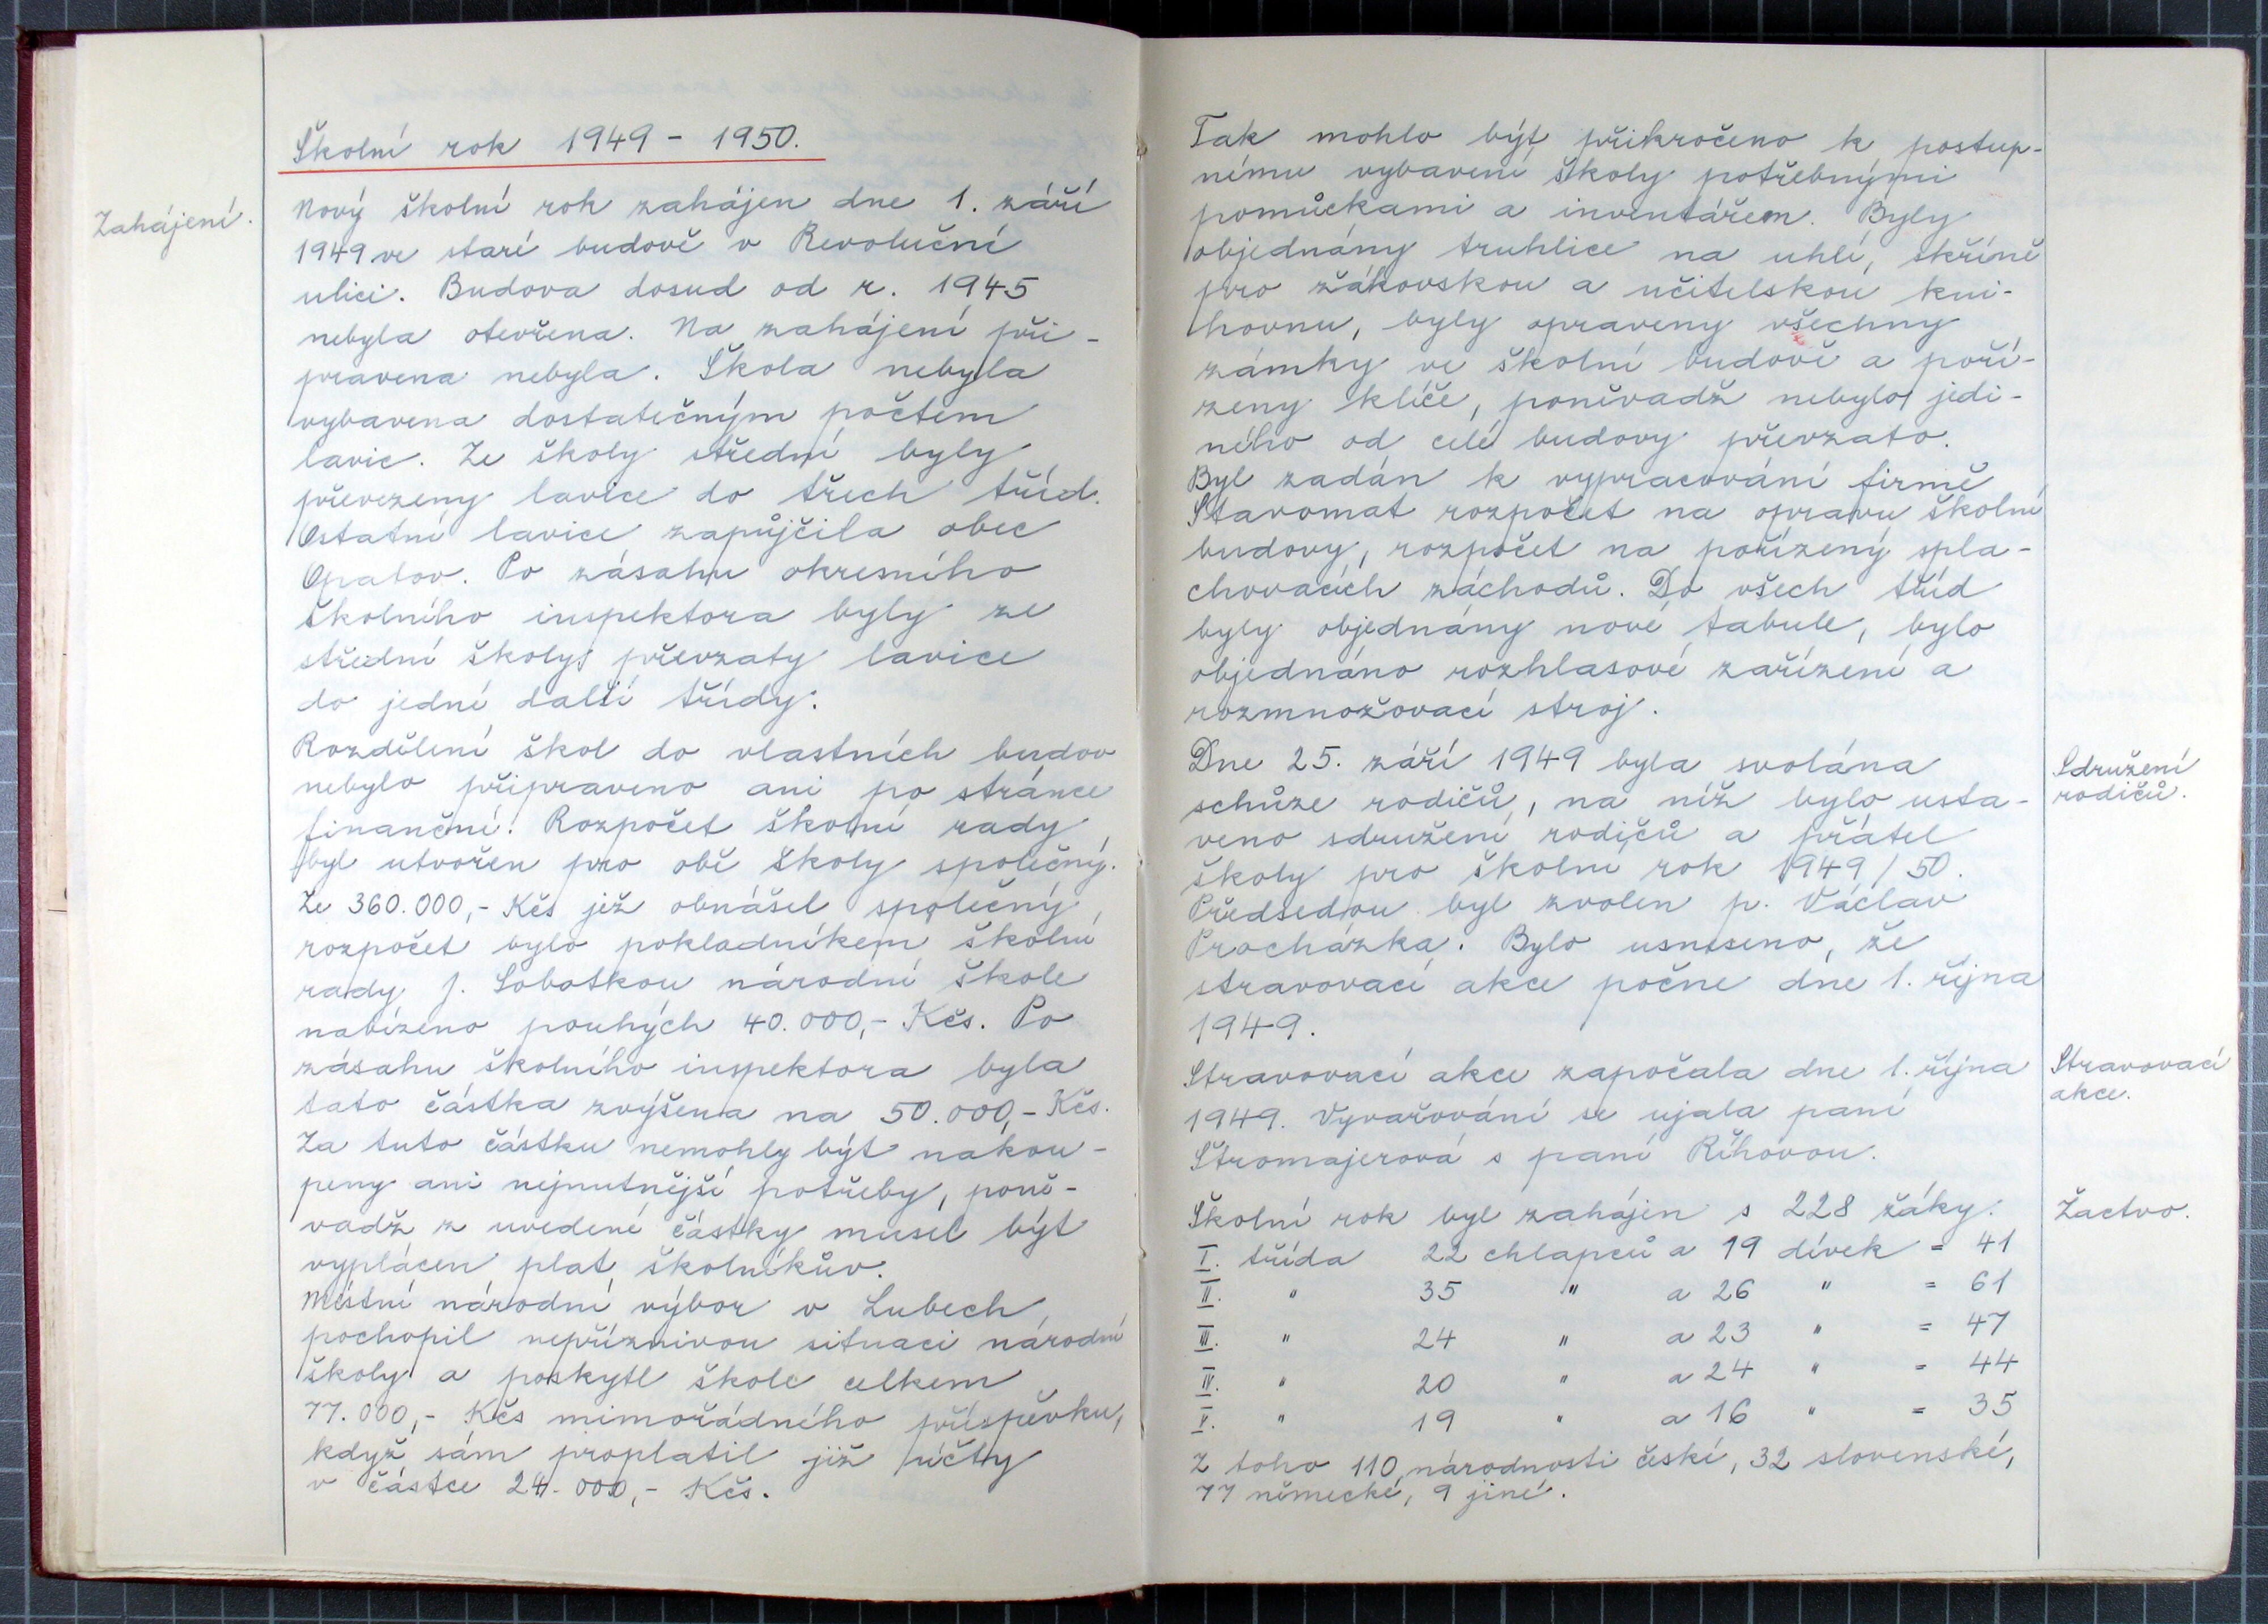 Školní rok 1949 - 1950.
Zahájení.
Nový školní rok zahájen dne 1. září
1949 ve staré budově v Revoluční
ulici. Budova dosud od r. 1945
nebyla otevřena. Na zahájení při-
pravena nebyla. Škola nebyla
vybavena dostatečným počtem
lavic. Ze školy střední byly
převezeny lavice do třech tříd.
Ostatní lavice zapůjčila obec
Opatov. Po zásahu okresního
školního inspektora byly ze
střední školy převzaty lavice
do jedné další třídy.
Rozdělení škol do vlastních budov
nebylo připraveno ani po stránce
finanční. Rozpočet školní rady
byl utvořen pro obě školy společný.
Ze 360.000,- Kčs jež obnášel společný
rozpočet bylo pokladníkem školní
rady J. Sobotkou národní škole
nabízeno pouhých 40.000,- Kčs. Po
zásahu školního inspektora byla
tato částka zvýšena na 50.000,- Kčs.
Za tuto částku nemohly být nakou-
peny ani nejnutnější potřeby, poně-
vadž z uvedené částky musel být
vyplácen plat školníkův.
Místní národní výbor v Lubech
pochopil nepříznivou situaci národní
školy a poskytl škole celkem
77.000,- Kčs mimořádného příspěvku,
když sám proplatil již účty
v částce 24.000,- Kčs.
Tak mohlo být přikročeno k postup-
nému vybavení školy potřebnými
pomůckami a inventářem. Byly
objednány truhlice na uhlí, skříně
pro žákovskou a učitelskou kni-
hovnu, byly opraveny všechny
zámky ve školní budově a poří-
zeny klíče, poněvadž nebylo jedi-
ného od celé budovy převzato.
Byl zadán k vypracování firmě
Stavomat rozpočet na opravu školní
budovy, rozpočet na pořízený spla-
chovacích záchodů. Do všech tříd
byly objednány nové tabule, bylo
objednáno rozhlasové zařízení a
rozmnožovací stroj.
Dne 25. září 1949 byla svolána
schůze rodičů, na níž bylo usta-
veno sdružení rodičů a přátel
školy pro školní rok 1949/50.
Předsedou byl zvolen p. Václav
Procházka. Bylo usneseno, že
stravovací akce počne dne 1. října
1949.
Sdružení
rodičů.
Stravovací akce započala dne 1. října
1949. Vyvařování se ujala paní
Štromajerová s paní Říhovou.
Stravovací
akce.
Školní rok byl zahájen s 228 žáky.
Žactvo.
I. třída 22 chlapců a 19 dívek = 41
II. " 35 " a 26 " = 61
III. " 24 " a 23 " = 47
IV. " 20 " a 24 " = 44
V. " 19 " a 16 " = 35
Z toho 110 národnosti české, 32 slovenské,
77 německé, 9 jiné.